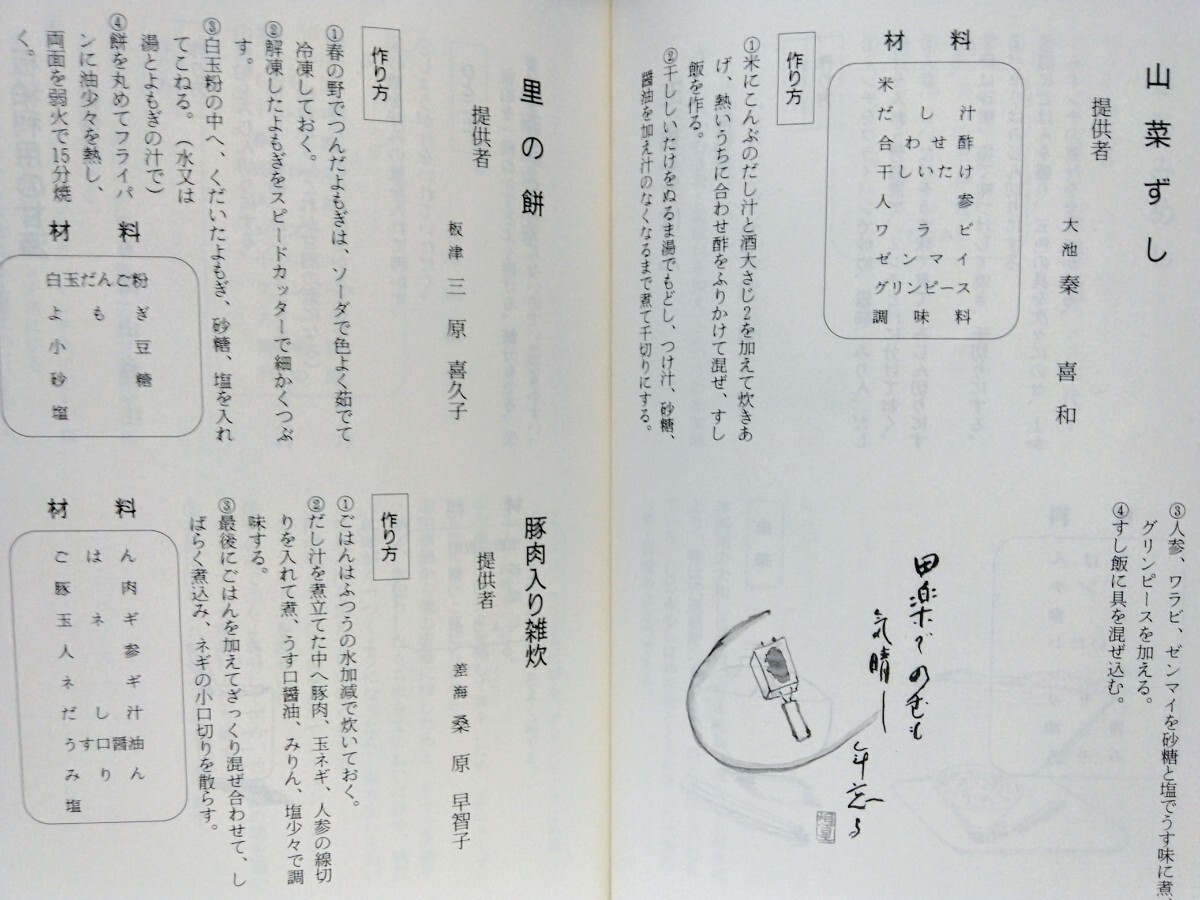 山菜ずし
提供者
大池 秦 喜和
材料
米
だし汁
合わせ酢
干しいたけ
人参
ワラビ
ゼンマイ
グリンピース
調味料
作り方
①米にこんぶのだし汁と酒大さじ2を加えて炊きあ
げ、熱いうちに合わせ酢をふりかけて混ぜ、すし
飯を作る。
②干ししいたけをぬるま湯でもどし、つけ汁、砂糖、
醤油を加え汁のなくなるまで煮て千切りにする。
③人参、ワラビ、ゼンマイを砂糖と塩でうす味に煮、
グリンピースを加える。
④すし飯に具を混ぜ込む。
田楽でのむも
気晴し
年忘る
里の餅
提供者
板津 三原 喜久子
作り方
①春の野でつんだよもぎは、ソーダで色よく茹でて
冷凍しておく。
②解凍したよもぎをスピードカッターで細かくつぶ
す。
③白玉粉の中へ、くだいたよもぎ、砂糖、塩を入れ
てこねる。(水又は
湯とよもぎの汁で)
④餅を丸めてフライパ
ンに油少々を熱し、
両面を弱火で15分焼
く。
材料
白玉だんご粉
よもぎ
小豆
砂糖
塩
豚肉入り雑炊
提供者
差海 桑原 早智子
作り方
①ごはんはふつうの水加減で炊いておく。
②だし汁を煮立てた中へ豚肉、玉ネギ、人参の線切
りを入れて煮、うす口醤油、みりん、塩少々で調
味する。
③最後にごはんを加えてざっくり混ぜ合わせて、し
ばらく煮込み、ネギの小口切りを散らす。
材料
ごはん
豚肉
玉ネギ
人参
ネギ
だし汁
うす口醤油
みりん
塩